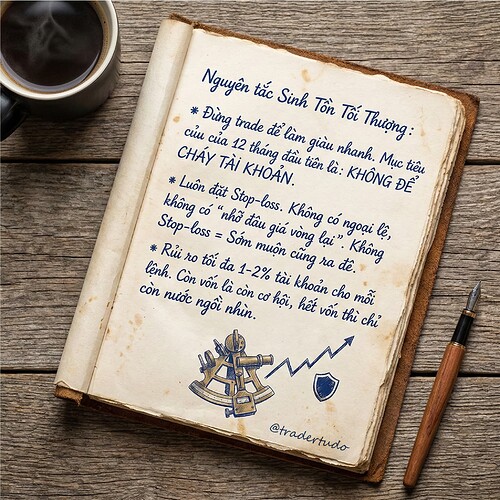 Nguyên tắc Sinh Tồn Tối Thượng:
* Đừng trade để làm giàu nhanh. Mục tiêu
của của 12 tháng đầu tiên là: KHÔNG ĐỂ
CHÁY TÀI KHOẢN.
* Luôn đặt Stop-loss. Không có ngoại lệ,
không có "nhỡ đâu giá vòng lại". Không
Stop-loss = Sớm muộn cũng ra đê.
* Rủi ro tối đa 1-2% tài khoản cho mỗi
lệnh. Còn vốn là còn cơ hội, hết vốn thì chỉ
còn nước ngồi nhìn.
@tradertudo